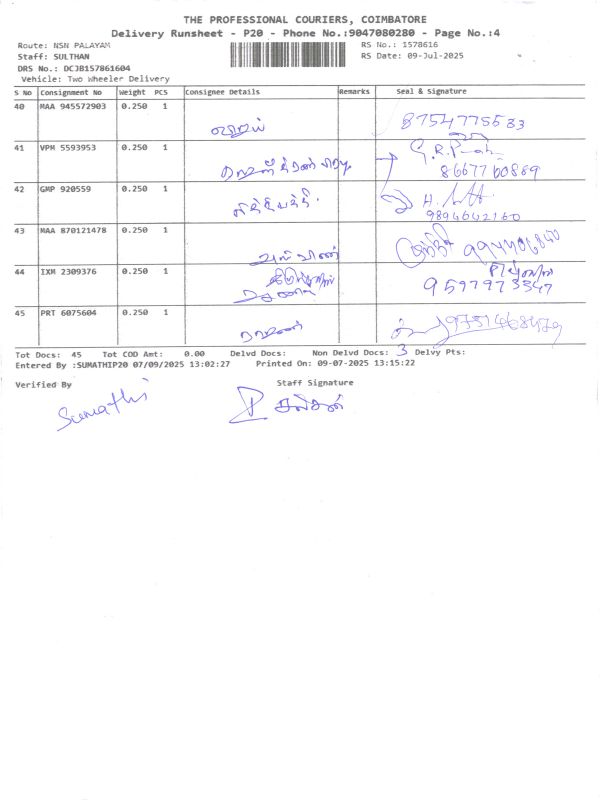 THE PROFESSIONAL COURIERS, COIMBATORE
Delivery Runsheet - P20 - Phone No.:9047080280 - Page No.:4
Route: NSN PALAYAM RS No.: 1578616
Staff: SULTHAN RS Date: 09-Jul-2025
DRS No.: DCJB157861604
Vehicle: Two Wheeler Delivery
S No Consignment No Weight PCS Consignee Details Remarks Seal & Signature
40 MAA 945572903 0.250 1
8754775533
41 VPM 5593953 0.250 1
8667760869
42 GMP 920559 0.250 1
9894642160
43 MAA 870121478 0.250 1
9944706840
44 IXM 2309376 0.250 1
9597973347
45 PRT 6075604 0.250 1
Tot Docs: 45 Tot COD Amt: 0.00 Delvd Docs: Non Delvd Docs: 3 Delvy Pts:
Entered By :SUMATHIP20 07/09/2025 13:02:27 Printed On: 09-07-2025 13:15:22
Verified By Staff Signature
Sumathi